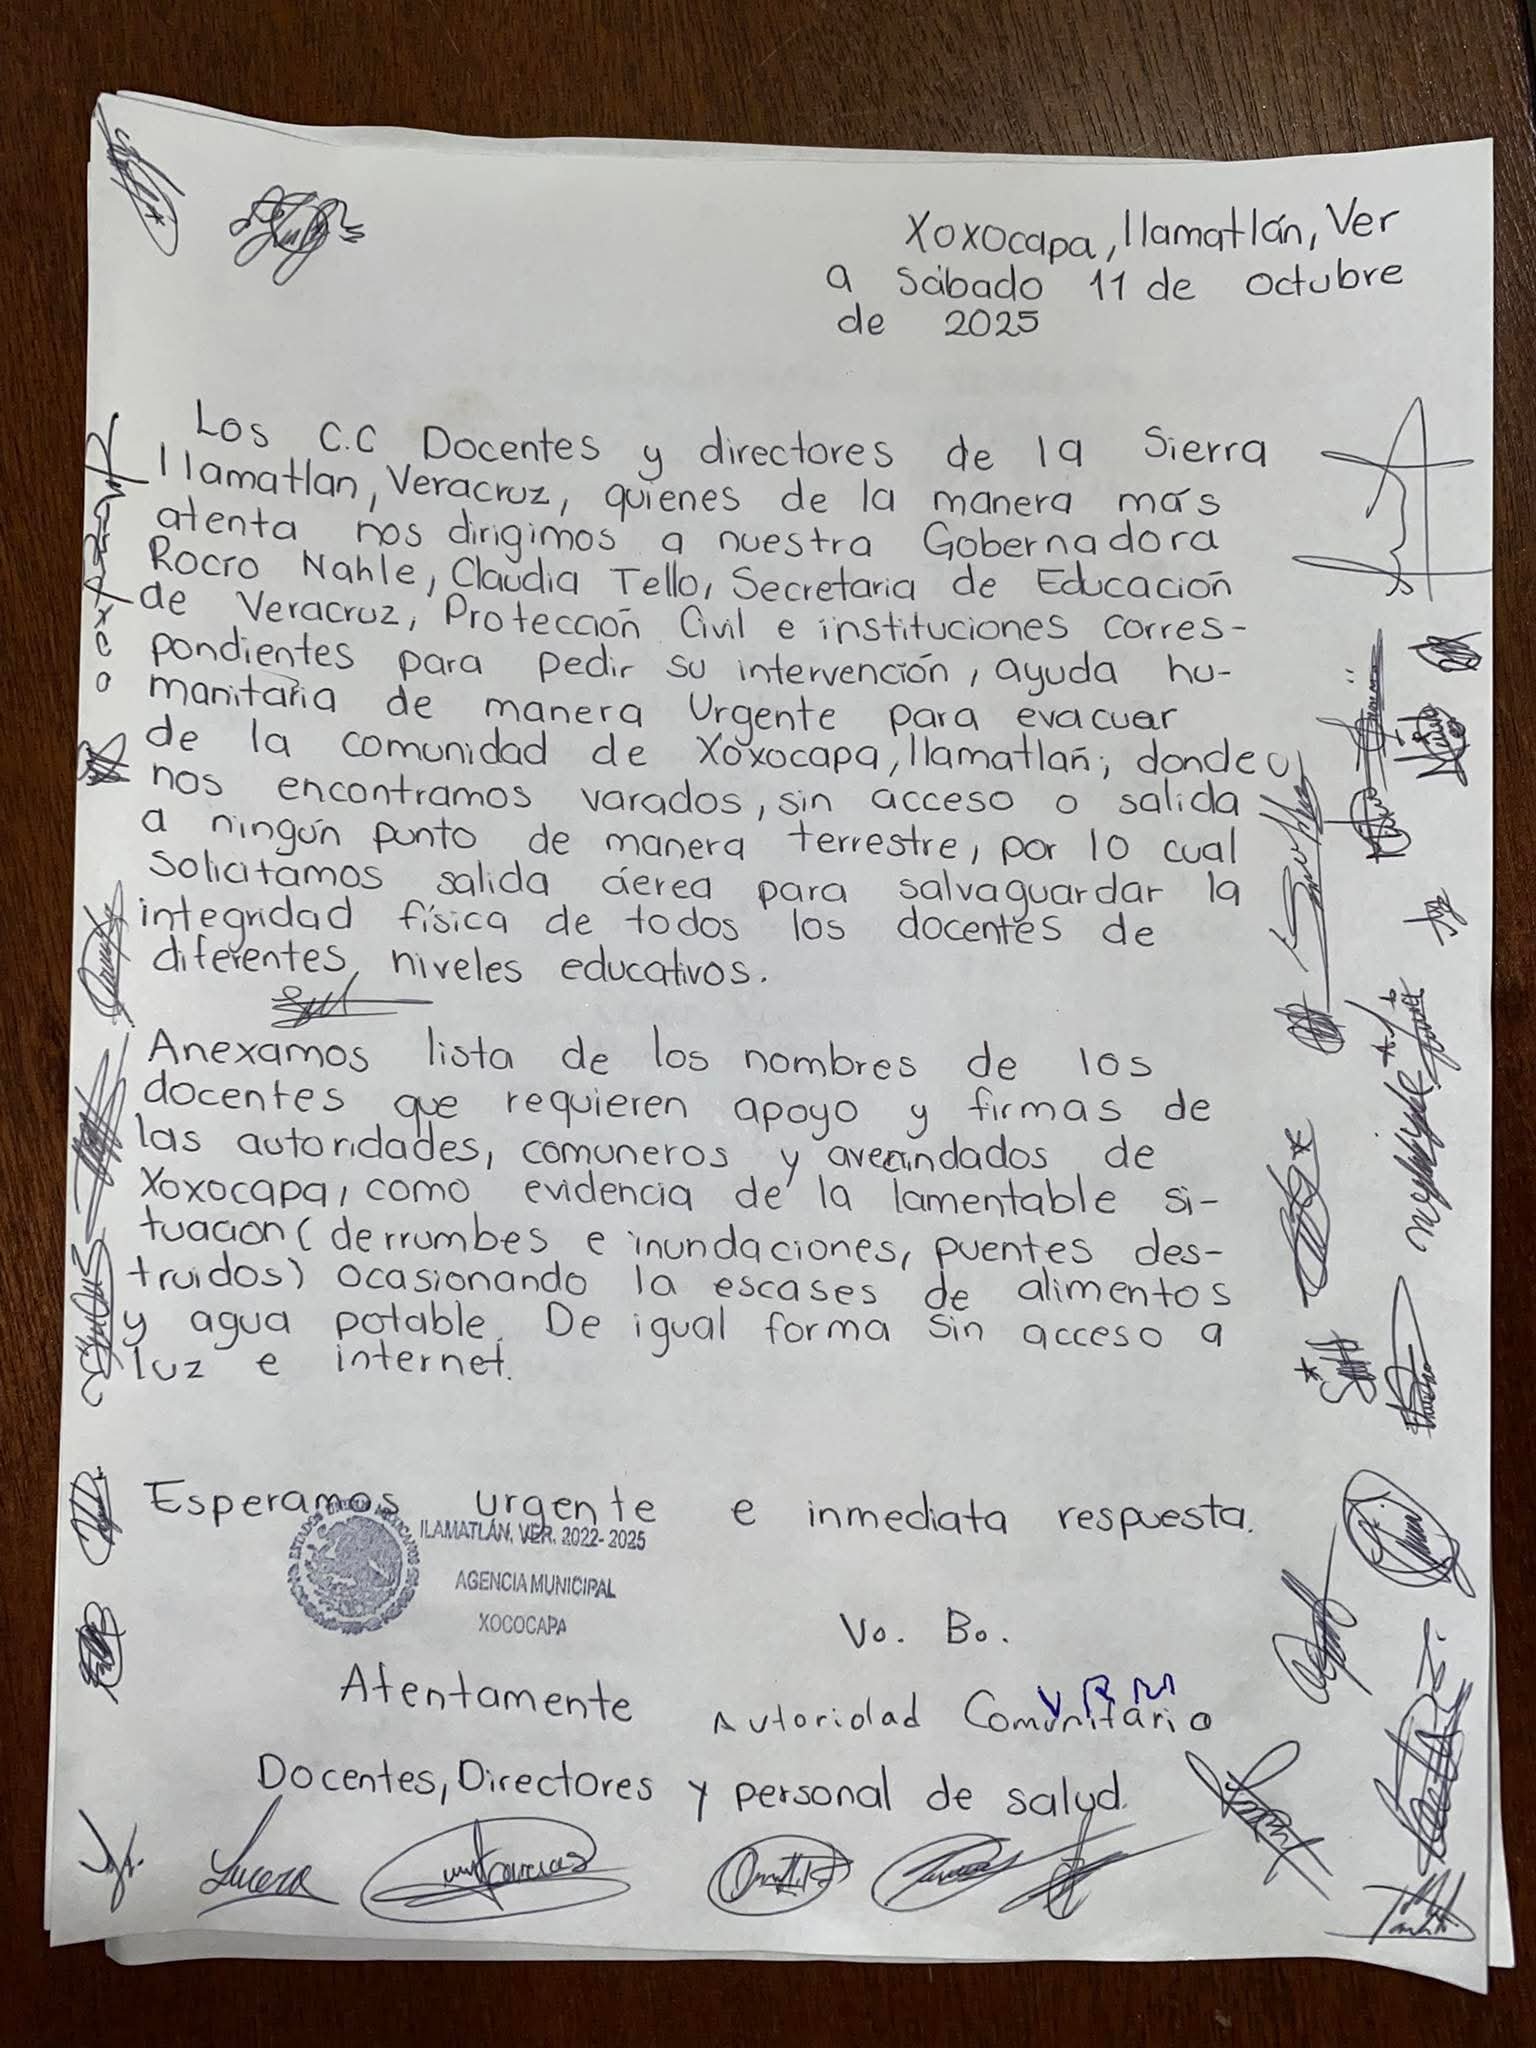 Xoxocapa, Ilamatlán, Ver
a Sábado 11 de octubre
de 2025
Los C.C Docentes y directores de la Sierra
Ilamatlan, Veracruz, quienes de la manera más
atenta nos dirigimos a nuestra Gobernadora
Rocío Nahle, Claudia Tello, Secretaria de Educación
de Veracruz, Protección Civil e instituciones corres-
pondientes para pedir su intervención, ayuda hu-
manitaria de manera Urgente para evacuar
de la comunidad de Xoxocapa, Ilamatlán; donde
nos encontramos varados, sin acceso o salida
a ningún punto de manera terrestre, por lo cual
solicitamos salida áerea para salvaguardar la
integridad física de todos los docentes de
diferentes niveles educativos.
Anexamos lista de los nombres de los
docentes que requieren apoyo y firmas de
las autoridades, comuneros y avecindados de
Xoxocapa, como evidencia de la lamentable si-
tuación (derrumbes e inundaciones, puentes des-
truidos) ocasionando la escases de alimentos
y agua potable. De igual forma sin acceso a
luz e internet.
Esperamos urgente e inmediata respuesta.
ESTADOS UNIDOS MEXICANOS
ILAMATLÁN, VER. 2022-2025
AGENCIA MUNICIPAL
XOCOCAPA
Vo. Bo.
Atentamente
V R M
Autoridad Comunitario
Docentes, Directores y personal de salud.
Lucero